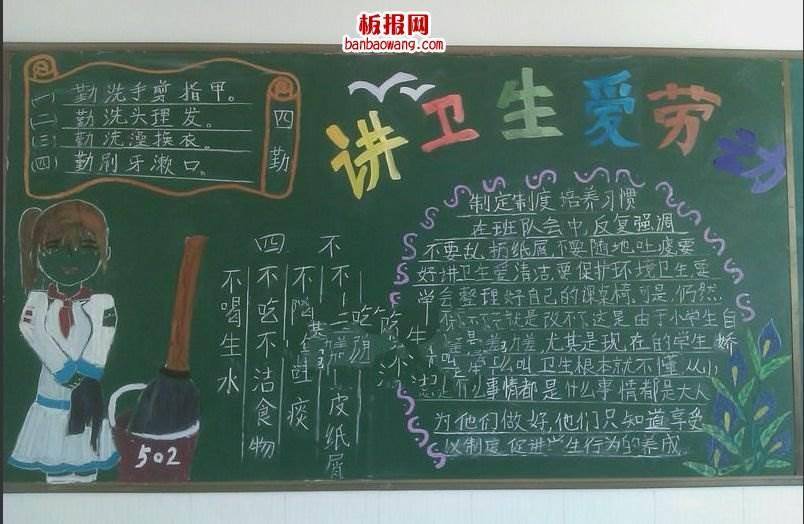 板报网
banbaowang.com
讲卫生爱劳动
四勤
(一) 勤洗手剪指甲。
(二) 勤洗头理发。
(三) 勤洗澡换衣。
(四) 勤刷牙漱口。
四不
不喝生水
不吃不洁食物
不随地吐痰
不
皮纸屑
502
制定制度 培养习惯
在班队会中,反复强调
不要乱扔纸屑,不要随地吐痰,要
好讲卫生爱清洁,要保护环境卫生,要
学会整理好自己的课桌椅。可是,仍然
就是改不了,这是由于小学生自
尤其是现在的学生娇
么叫卫生根本就不懂,从小
事情都是什么事情都是大人
为他们做好,他们只知道享受
以制度促进学生行为的养成